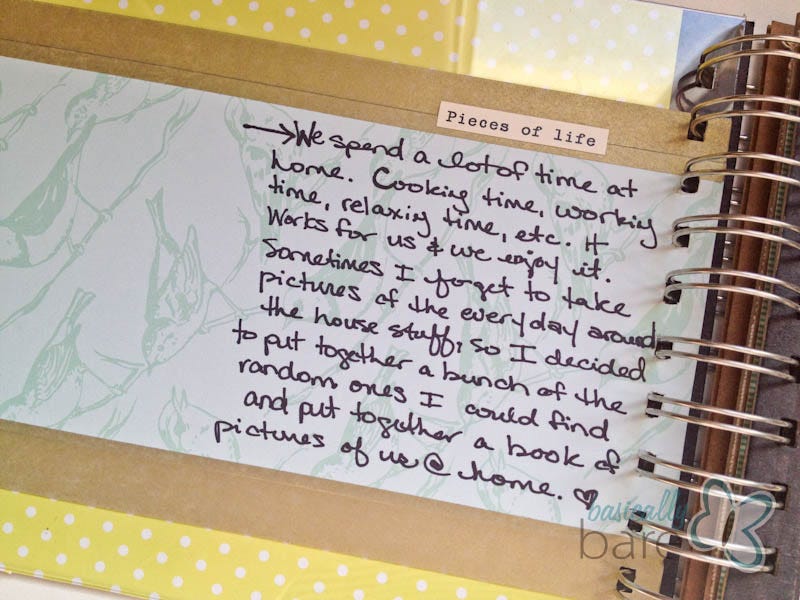 Pieces of life
→We spend a lot of time at
home. Cooking time, working
time, relaxing time, etc. It
works for us & we enjoy it.
Sometimes I forget to take
pictures of the everyday around
the house stuff, so I decided
to put together a bunch of the
random ones I could find
and put together a book of
pictures of us @ home. ♡
basically
bare